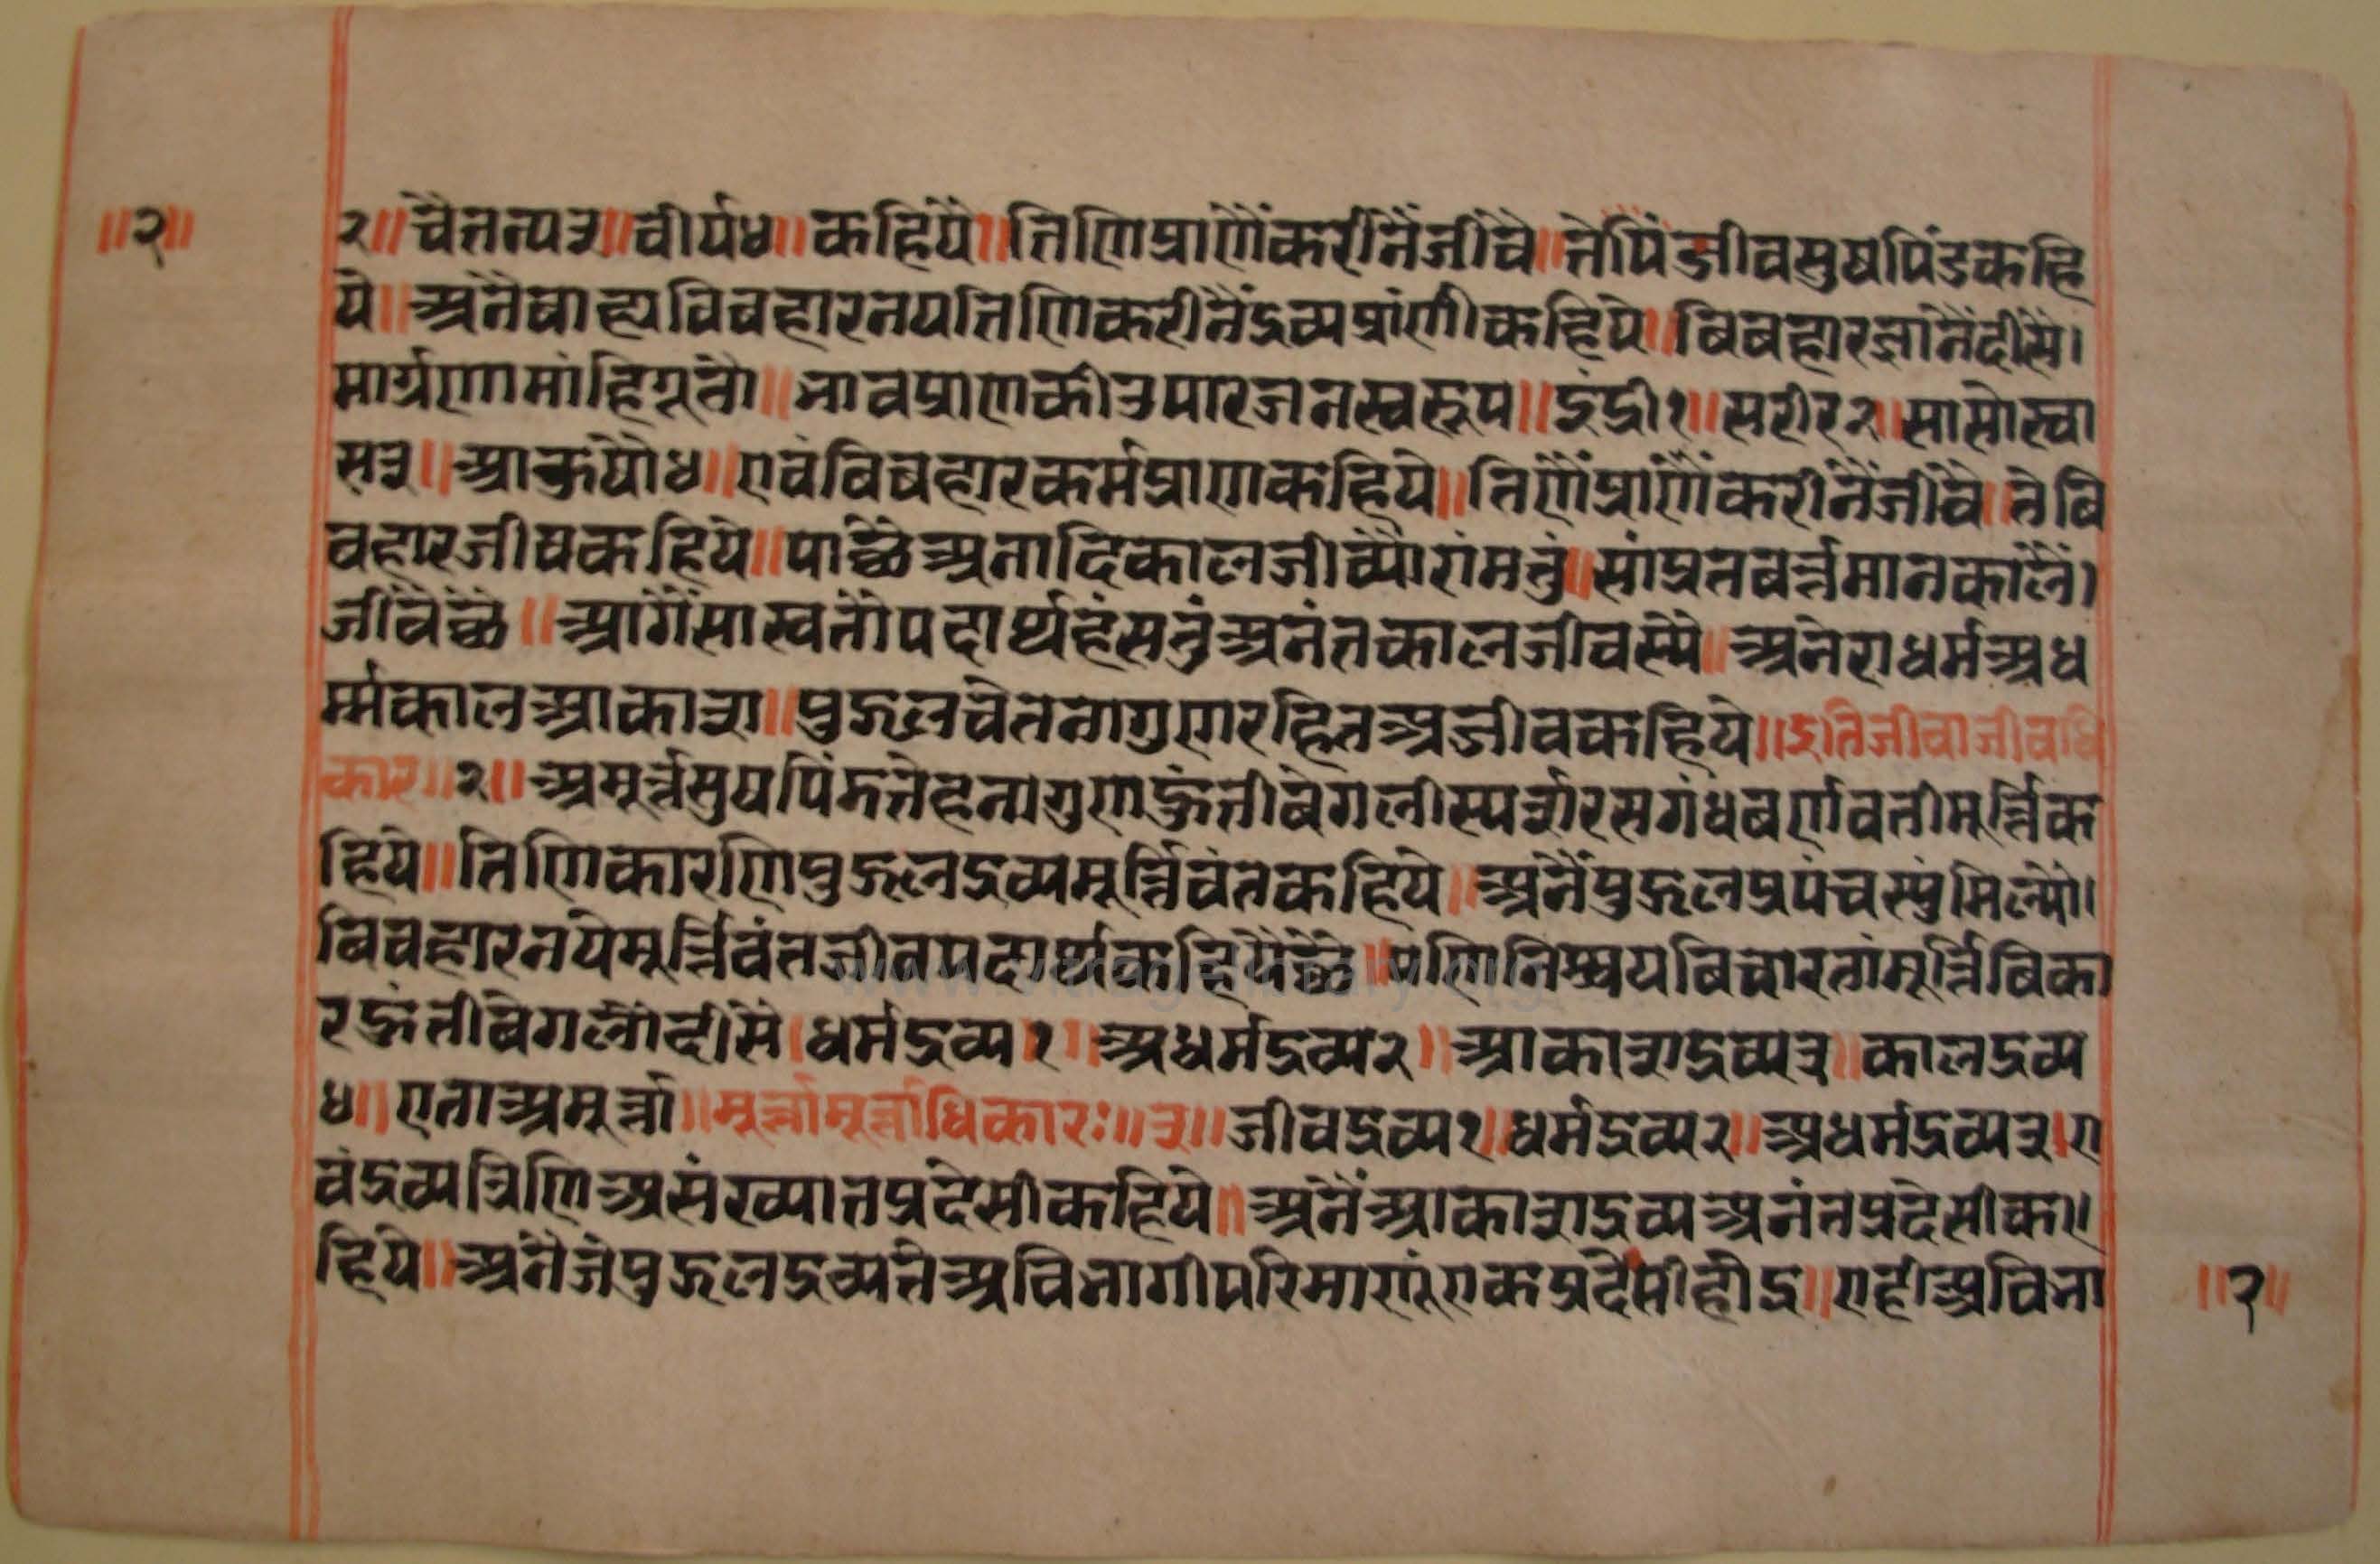 ॥२॥
२॥ चैतन्य३॥ वीर्य४॥ कहियै॥ तिणिप्राणैंकरीनैंजीवै॥ तेपिंजीवसुषपिंडकहि
ये॥ अनैबाह्यविवहारनयतिणिकरीनैंद्रव्यप्रांणीकहिये॥ विवहारज्ञांनैंदीसै।
मार्ग्रणामांहि भावप्राणकीउपारजनस्वरूप॥ इंद्री१॥ सरीर२॥ सासोस्वा
स३॥ आऊषौ४॥ एवंविवहारकर्मप्राणकहिये॥ तिणैंप्रांणैंकरीनैंजीवै॥ तेवि
वहारजीवकहिये॥ पाछैअनादिकालजीव्यौ सांप्रतवर्त्तमानकालैं।
जीवैछै॥ आगैंसास्वतौपदार्थ अनंतकालजीवस्यै॥ अनेराधर्मअध
र्म्मकालआकाश॥ पुद्गलचेतनागुणरहितअजीवकहिये॥ इतिजीवाजीवधि
कार॥२॥ अमूर्त्तसुषपिंडतेहनागुणहुंतीवेगलीस्पर्शरसगंधवर्णवतीमूर्त्तिक
हिये॥ तिणिकारणिपुद्गलद्रव्यमूर्त्तिवंतकहिये॥ अनैंपुद्गलप्रपंचस्युंमिल्यौ।
विवहारनयेमूर्त्तिवंतजीवपदार्थकहियैछै॥ पणिनिश्चयविचारतांमूर्त्तिविका
रहुंतीवेगलौदीसै॥ धर्मद्रव्य१॥ अधर्मद्रव्य२॥ आकाशद्रव्य३॥ कालद्रव्य
४॥ एताअमूर्त्ता॥ मूर्त्तामूर्त्ताधिकारः॥३॥ जीवद्रव्य१॥ धर्मद्रव्य२॥ अधर्मद्रव्य३। ए
वंद्रव्यत्रिणिअसंख्यातप्रदेसीकहिये॥ अनैंआकाशद्रव्यअनंतप्रदेसीक॥
हिये॥ अनैजेपुद्गलद्रव्यतेअविभागीपरिमाणूंएकप्रदेसीहोइ॥ एहीअविभा
॥२॥